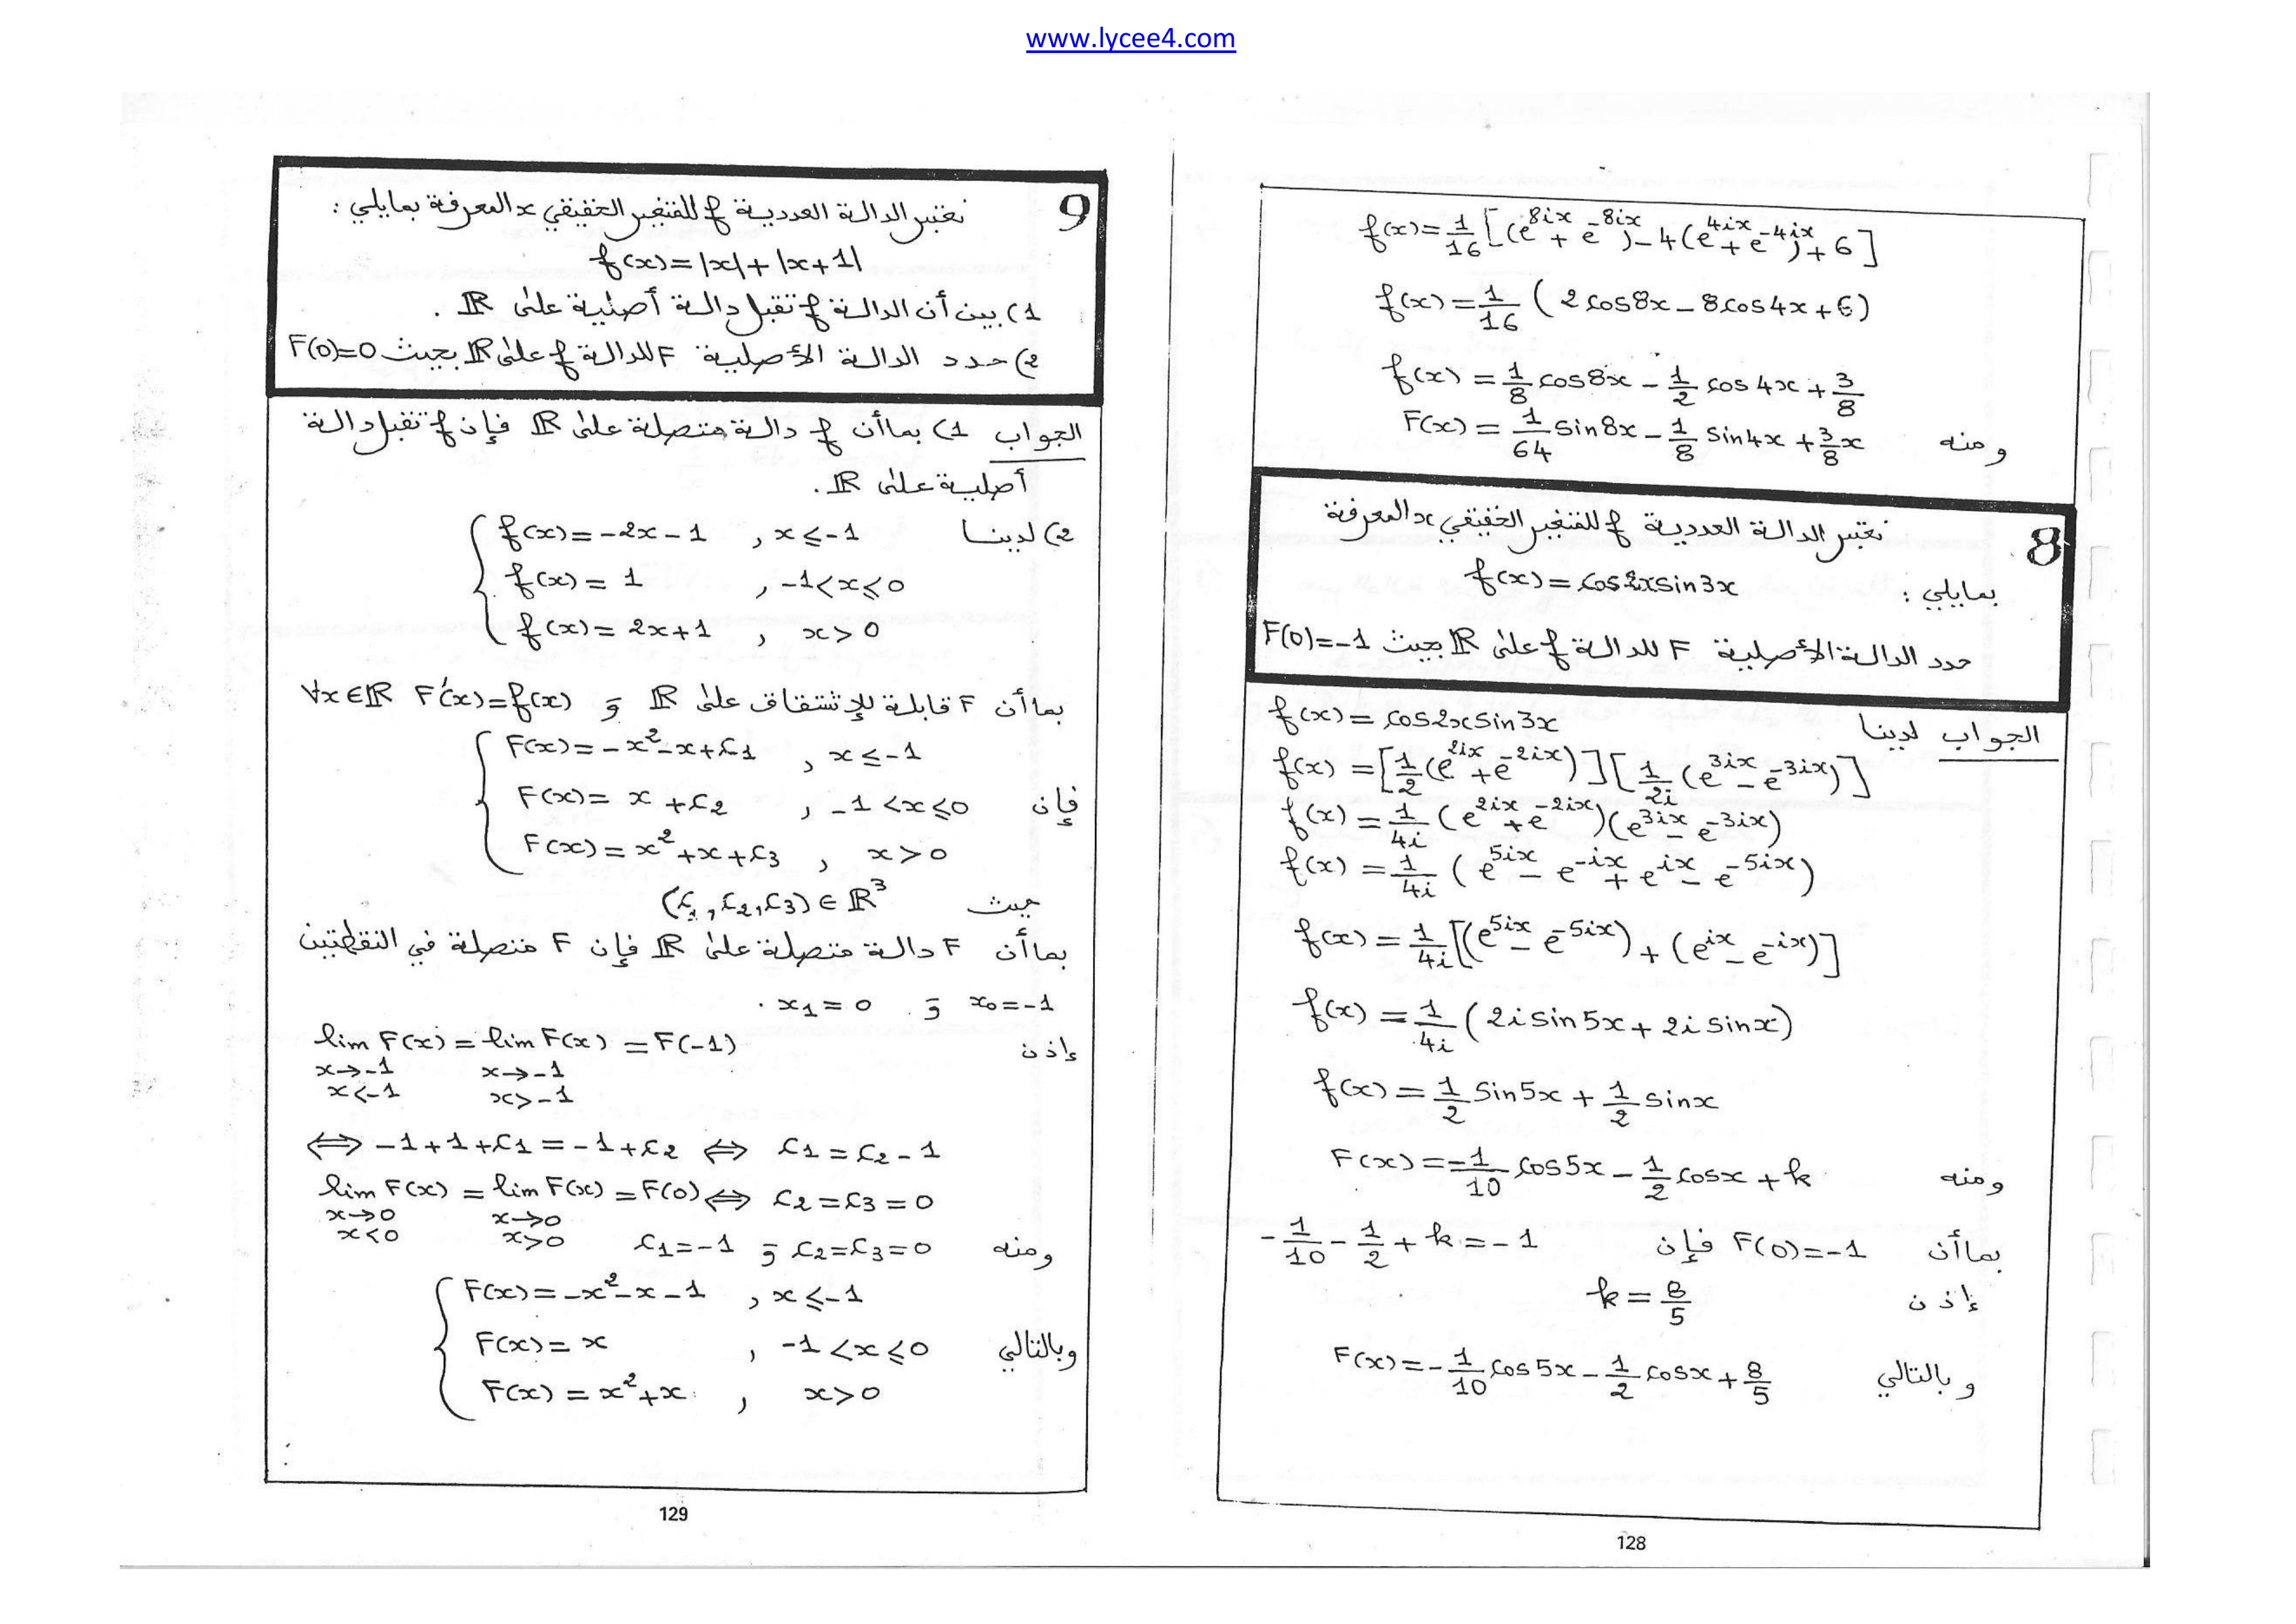 www.lycee4.com
f(x)=1/16[(e^{8ix}+e^{-8ix})-4(e^{4ix}+e^{-4ix})+6]
f(x)=1/16(2cos8x-8cos4x+6)
f(x)=1/8 cos8x-1/2 cos4x+3/8
ومنه F(x)=1/64 sin8x-1/8 sin4x+3/8 x
8
نعتبر الدالة العددية f للمتغير الحقيقي x المعرفة
بمايلي : f(x)=cos2xsin3x
حدد الدالة الأصلية F للدالة f على ℝ بحيث F(0)=-1
الجواب لدينا f(x)=cos2xsin3x
f(x)=[1/2(e^{2ix}+e^{-2ix})][1/2i(e^{3ix}-e^{-3ix})]
f(x)=1/4i(e^{2ix}+e^{-2ix})(e^{3ix}-e^{-3ix})
f(x)=1/4i(e^{5ix}-e^{-ix}+e^{ix}-e^{-5ix})
f(x)=1/4i[(e^{5ix}-e^{-5ix})+(e^{ix}-e^{-ix})]
f(x)=1/4i(2isin5x+2isinx)
f(x)=1/2 sin5x+1/2 sinx
ومنه F(x)=-1/10 cos5x-1/2 cosx+k
بماأن F(0)=-1 فإن -1/10-1/2+k=-1
إذن k=8/5
وبالتالي F(x)=-1/10 cos5x-1/2 cosx+8/5
128
9
نعتبر الدالة العددية f للمتغير الحقيقي x المعرفة بمايلي :
f(x)=|x|+|x+1|
1) بين أن الدالة f تقبل دالة أصلية على ℝ .
2) حدد الدالة الأصلية F للدالة f على ℝ بحيث F(0)=0
الجواب 1) بماأن f دالة متصلة على ℝ فإن f تقبل دالة
أصلية على ℝ.
2) لدينا f(x)=-2x-1 , x≤-1
f(x)=1 , -1<x≤0
f(x)=2x+1 , x>0
بماأن F قابلة للإشتقاق على ℝ و ∀x∈ℝ F'(x)=f(x)
F(x)=-x²-x+c₁ , x≤-1
فإن F(x)=x+c₂ , -1<x≤0
F(x)=x²+x+c₃ , x>0
حيث (c₁,c₂,c₃)∈ℝ³
بماأن F دالة متصلة على ℝ فإن F متصلة في النقطتين
x₀=-1 و x₁=0 .
إذن lim F(x)=lim F(x)=F(-1)
x→-1 x→-1
x<-1 x>-1
⟺ -1+1+c₁=-1+c₂ ⟺ c₁=c₂-1
lim F(x)=lim F(x)=F(0) ⟺ c₂=c₃=0
x→0 x→0
x<0 x>0
ومنه c₂=c₃=0 و c₁=-1
F(x)=-x²-x-1 , x≤-1
وبالتالي F(x)=x , -1<x≤0
F(x)=x²+x , x>0
129